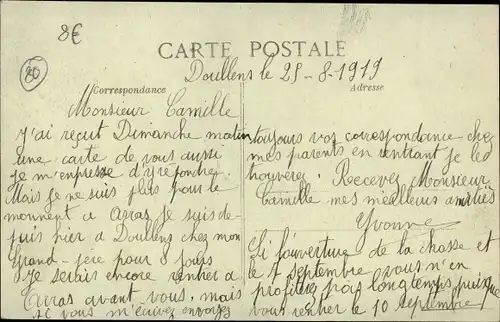 8€
80
CARTE POSTALE
Doullens le 25-8-1919
Correspondance
Adresse
Monsieur Camille
J'ai reçut Dimanche matin
une carte de vous aussi
je m'enpresse d'y repondre
Mais je ne suis plus pour le
monment a Arras je suis de-
puis hier a Doullens chez mon
Grand-père pour 8 jours
Je serais encore rentrer a
Arras avant vous, mais
si vous m'écrivez envoyez
toujours vos correspondance chez
mes parents en rentrant je les
trouverez. Recevez Monsieur
Camille mes meilleurs amitiés
Yvonne
Si l'ouverture de la chasse et
le 7 Septembre vous n'en
profiterez pas longtemps puisque
vous rentrer le 10 septembre